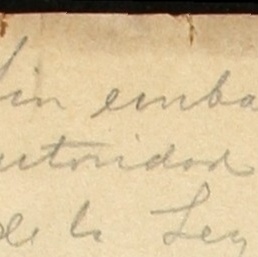 Sin emba
utoridad
de la Ley